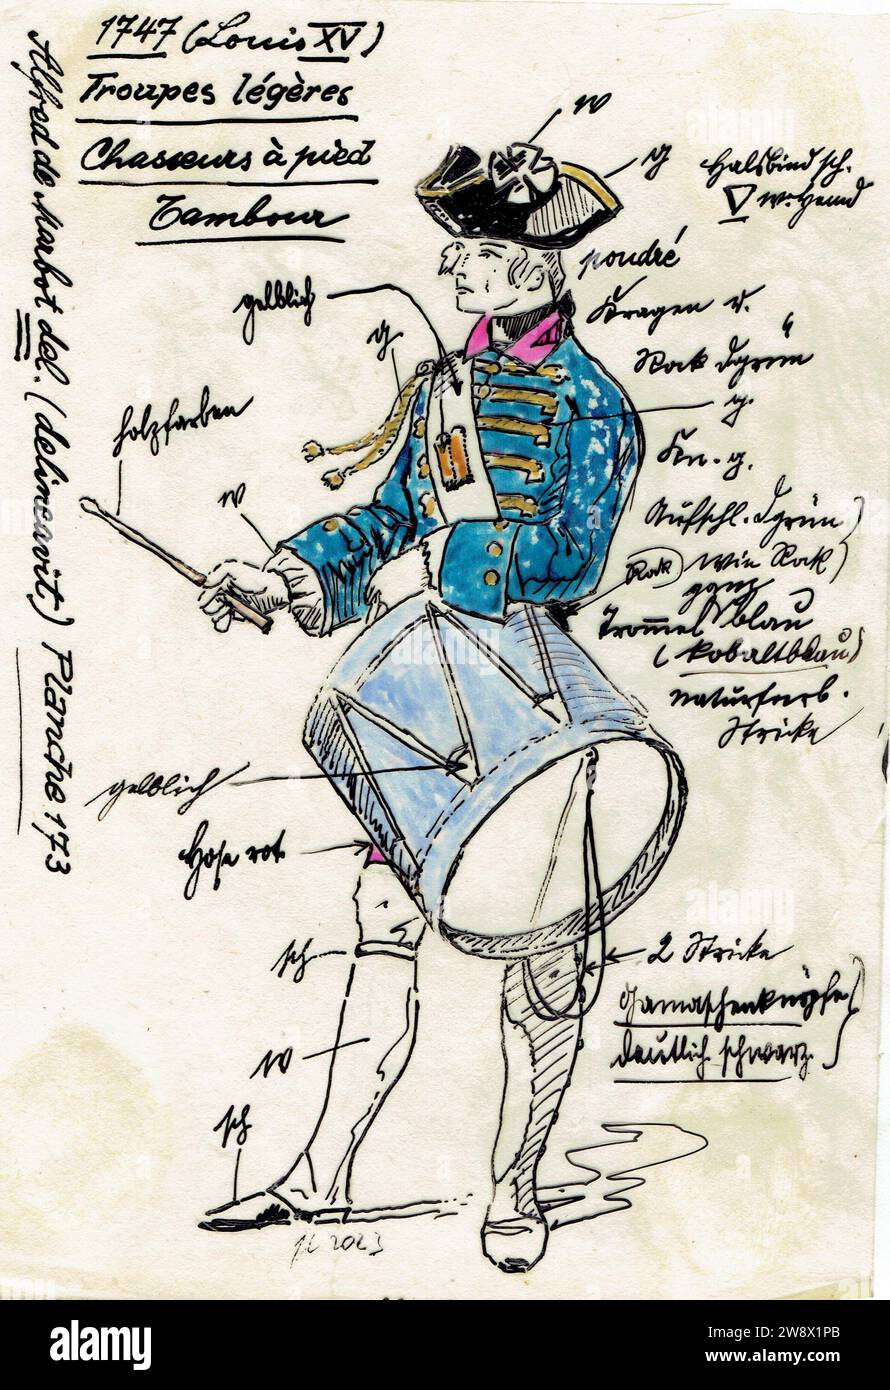 1747 (Louis XV)
Troupes légères
Chasseurs à pied
Tambour
Alfred de Marbot del. (delineavit) Planche 173
w
g
Halsbind sch.
w. Hemd
poudré
gelblich
g
Kragen v.
Rock dgrün
g.
holzfarben
Kn. g.
w
Aufschl. dgrün
(Rock) wie Rock)
ganz
Trommel blau
(kobaltblau)
naturfarb.
Stricke
gelblich
Hose rot
sch
2 Stricke
Gamaschenknöpfe
deutlich schwarz.
w
sch
2023
alamy
Image ID: 2W8X1PB
www.alamy.com